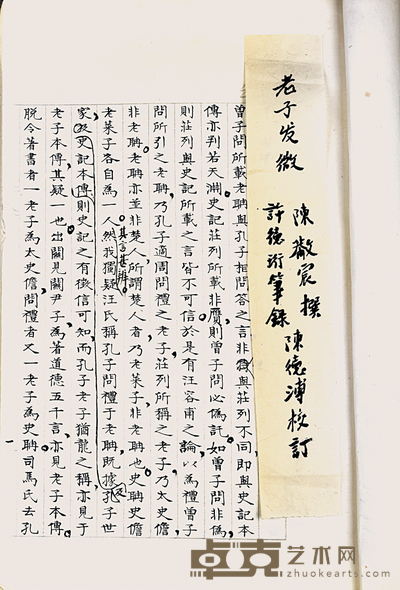 老子发微 陳黻宸撰
許德珩筆錄 陳德溥校訂
曾子問所載老聃與孔子相問答之言非徒與莊列不同即與史記本
傳亦判若天淵史記莊列所載非贗則曾子問必偽託如曾子問非偽
則莊列與史記所載之言皆不可信於是有汪容甫之論以為禮曾子
問所引之老聃乃孔子適周問禮之老子莊列所稱之老子乃太史儋
非老聃老聃亦並非楚人所謂楚人者乃老萊子非老聃也史聃史儋
老萊子各自為一人其言甚辨然我獨疑汪氏稱孔子問禮于老聃既據孔子世
家及史記本傳則史記之有徵信可知而孔子老子猶龍之稱亦見于
老子本傳其疑一也出關見關尹子為著道德五千言亦見老子本傳
脫今著書者一老子為太史儋問禮者又一老子為史聃司馬氏去孔
一
卓克艺术网
zhuokearts.com